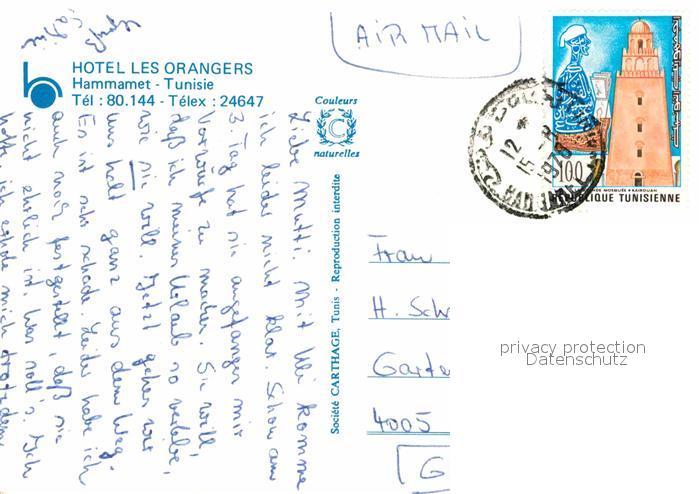 AIR MAIL
HOTEL LES ORANGERS
Hammamet - Tunisie
Tél : 80.144 - Télex : 24647
Couleurs
C
naturelles
Société CARTHAGE, Tunis - Reproduction interdite
Liebe Mutti. Mit Uli komme
ich leider nicht klar. Schon am
3. Tag hat sie angefangen mir
Vorwürfe zu machen. Sie will,
daß ich meinen Urlaub so verlebe,
wie sie will. Jetzt gehen wir
uns halt ganz aus dem Weg.
Es ist sehr schade. Leider habe ich
auch noch festgestellt, daß sie
nicht ehrlich ist. Was soll's? Ich
hoffe ich erhole mich trotzdem
100
MOSQUÉE KAIROUAN
REPUBLIQUE TUNISIENNE
Frau
H. Sch
Garte
4005
G
privacy protection
Datenschutz